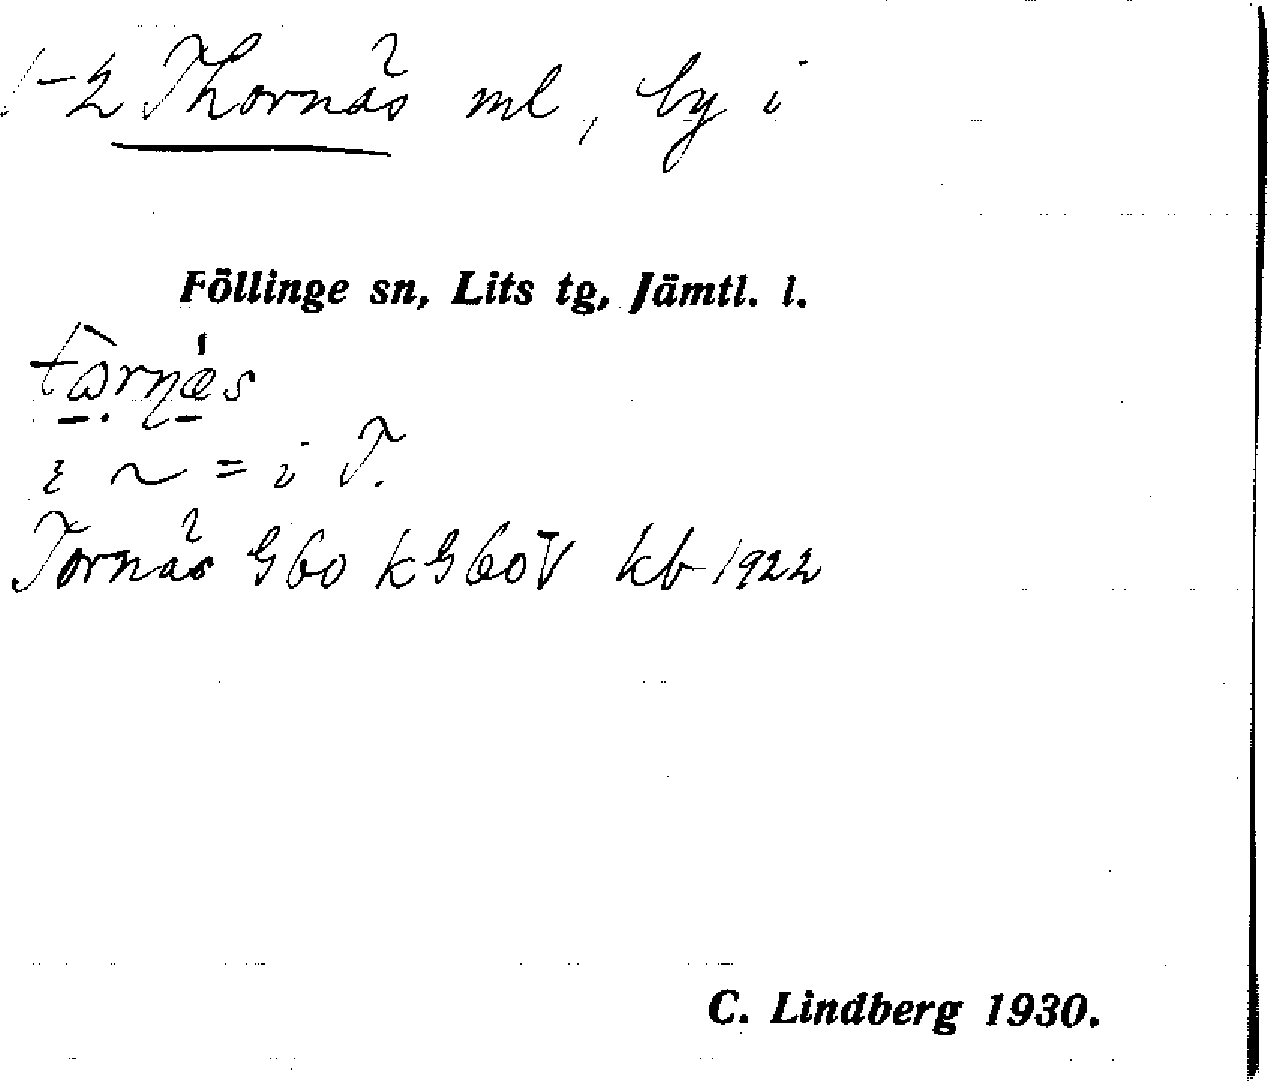 1-2 Thornäs ml, by i
Föllinge sn, Lits tg, Jämtl. l.
i ~ = i T.
Tornäs G60 kG60V kb 1922
C. Lindberg 1930.